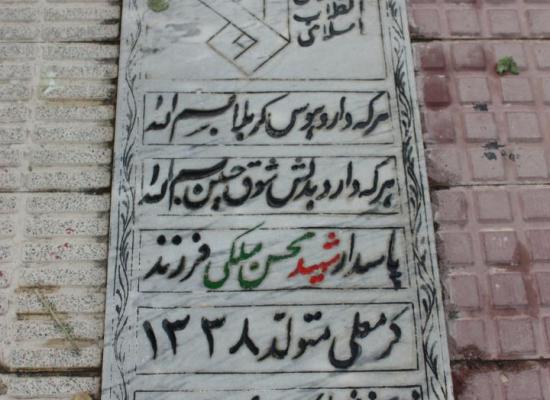 انقلاب
اسلامی
هر که دارد هوس کربلا بسم الله
هر که دارد بدلش شوق حسین بسم الله
پاسدار شهید محسن ملکی فرزند
کرمعلی متولد ۱۳۳۸